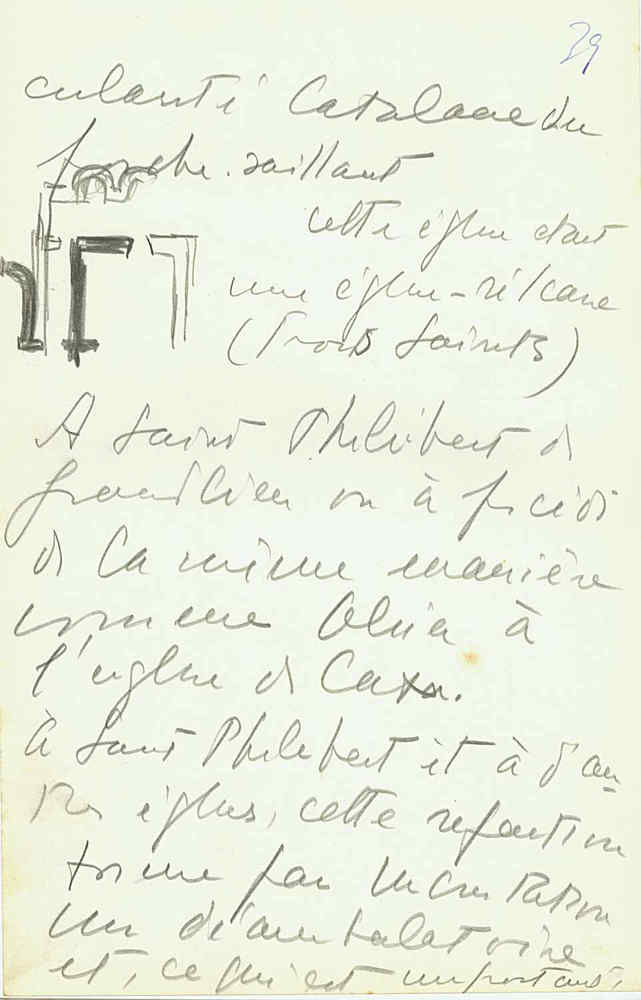 39
Catalane du
porche. saillant
cette église était
une église-
(Trois Saints)
A Saint Philibert de
Grandlieu on à procédé
de la même manière
comme Oliba à
l'église de Cuxa.
à Saint Philibert et à d'au-
tres églises, cette réfection
forme par incrustation
un déambulatoire
et, ce qui est important,